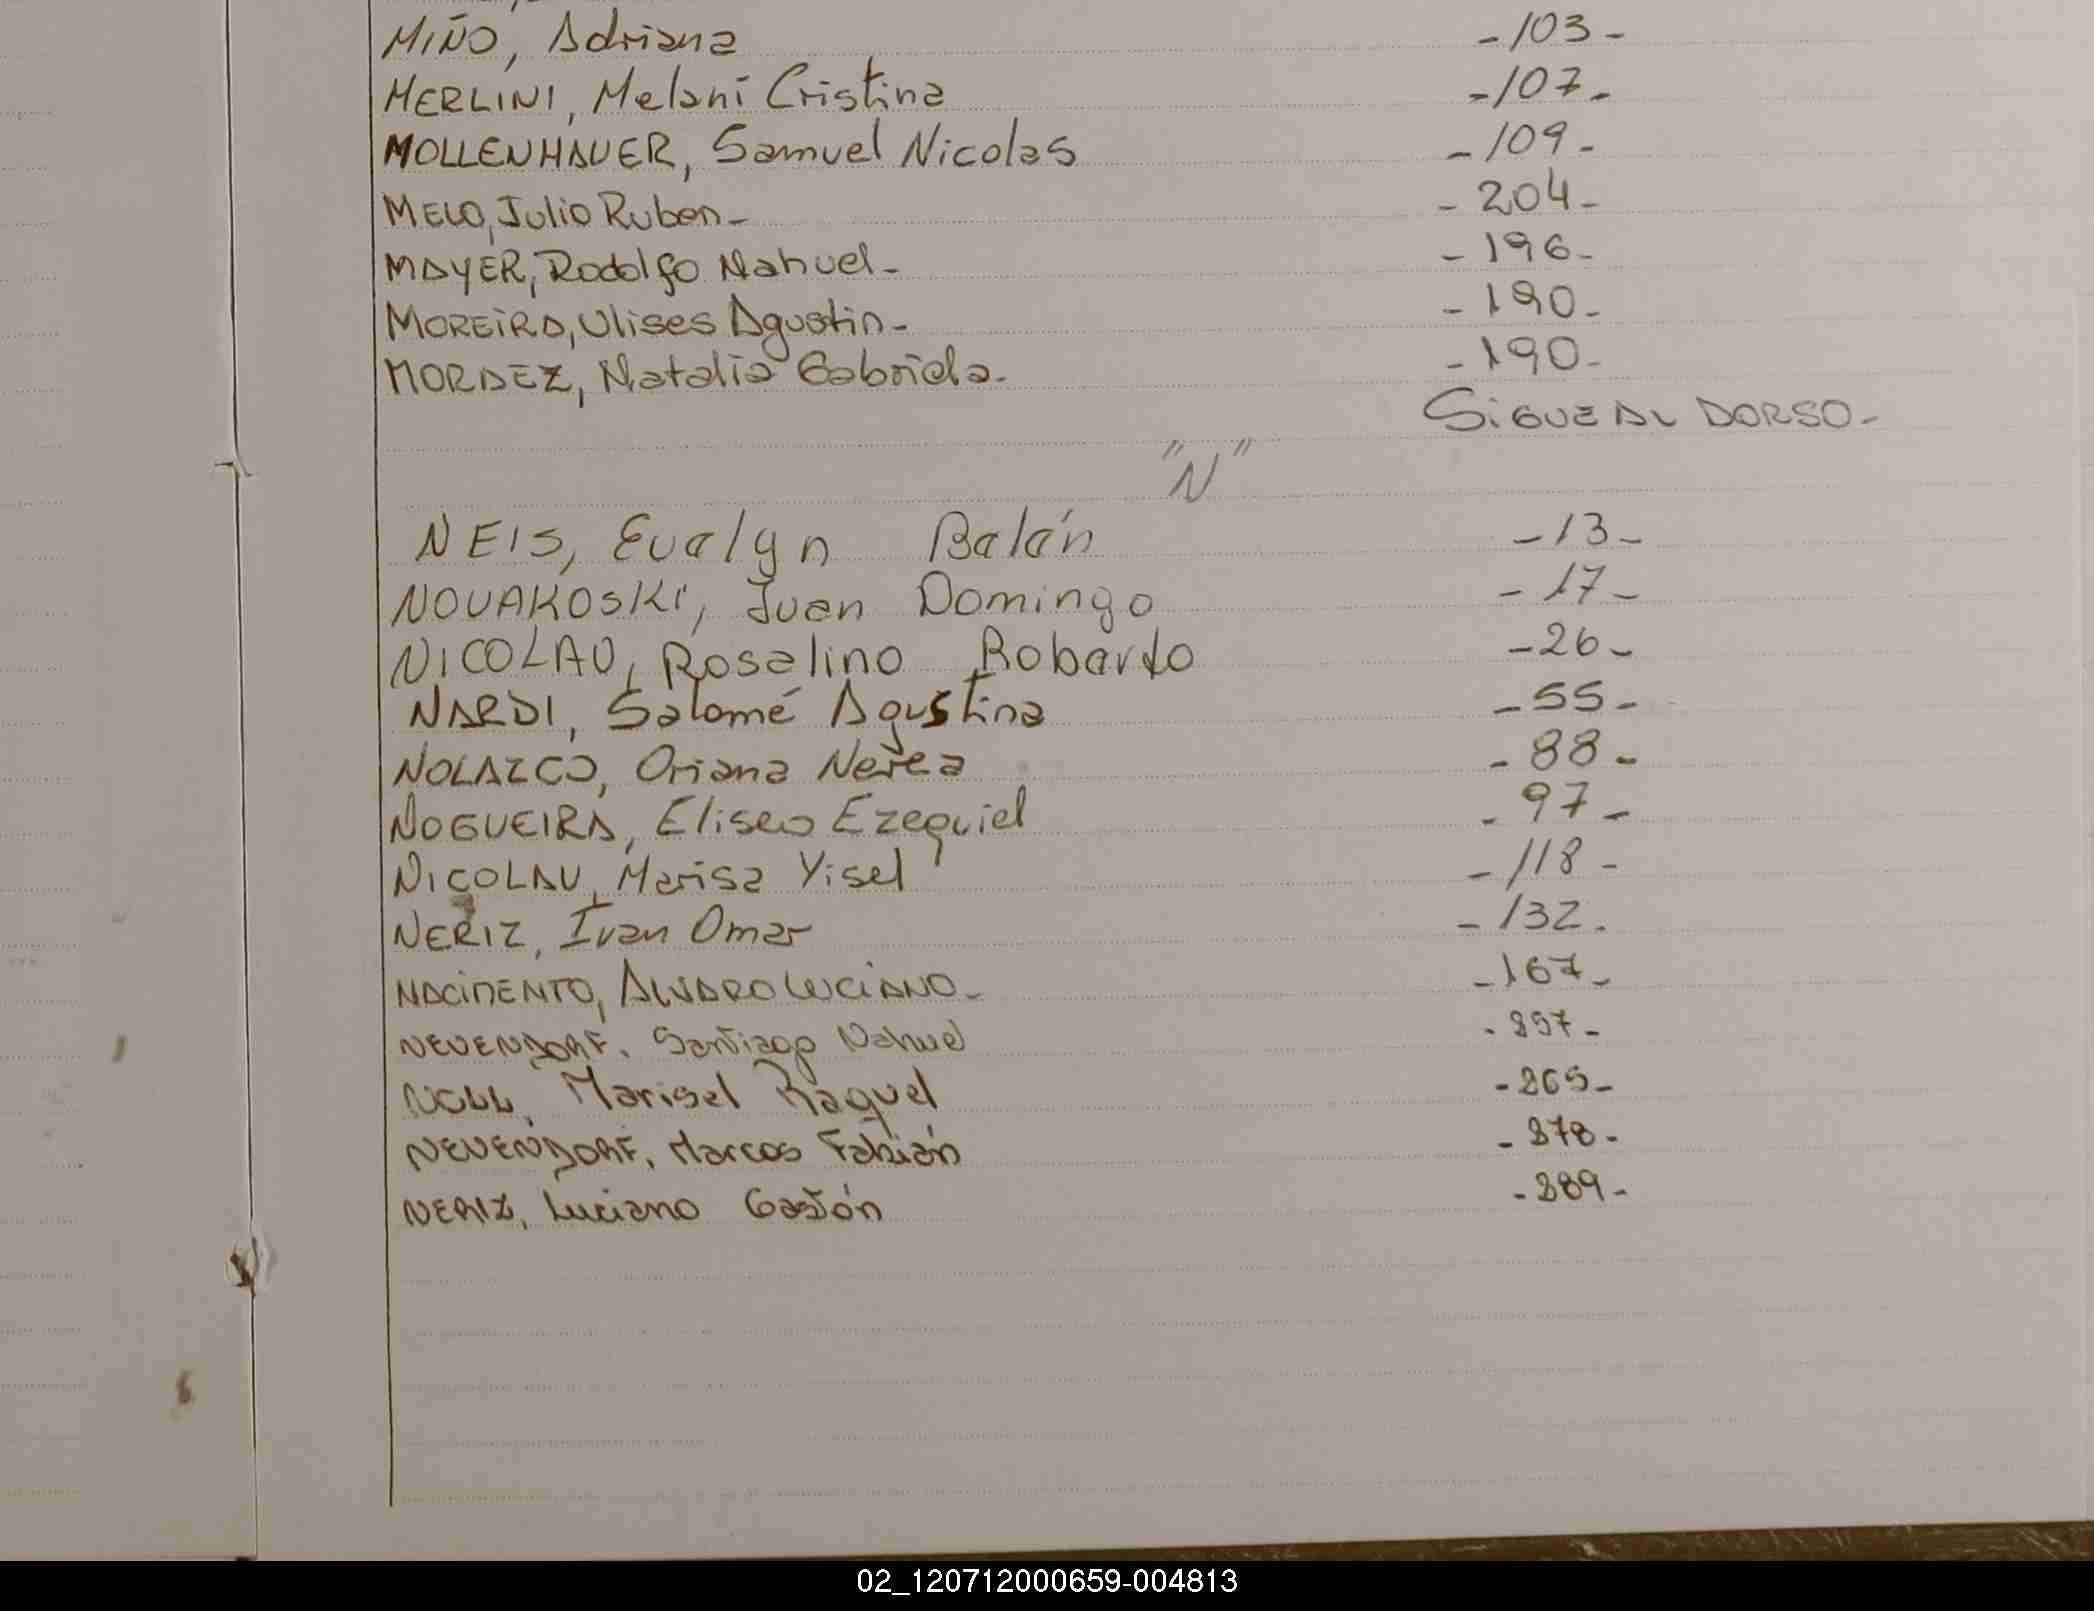 MIÑO, Adriana -103-
MERLINI, Melani Cristina -107-
MOLLENHAUER, Samuel Nicolas -109-
MELO, Julio Ruben- -204-
MAYER, Rodolfo Nahuel- -196-
MOREIRA, Ulises Agustin- -190-
MORAEZ, Natalia Gabriela. -190-
SIGUE AL DORSO-
"N"
NEIS, Evelyn Belén -13-
NOVAKOSKI, Juan Domingo -17-
NICOLAU, Rosalino Roberto -26-
NARDI, Salomé Agustina -55-
NOLAZCO, Oriana Nerea -88-
NOGUEIRA, Eliseo Ezequiel -97-
NICOLAU, Marisa Yisel -118-
NERIZ, Ivan Omar -132.
NACIMENTO, ALVARO LUCIANO- -167-
NEUENDORF, Santiago Nahuel -257-
NOLL, Marisel Raquel -265-
NEUENDORF, Marcos Fabián -278-
NERIZ, Luciano Gastón -289-
02_120712000659-004813